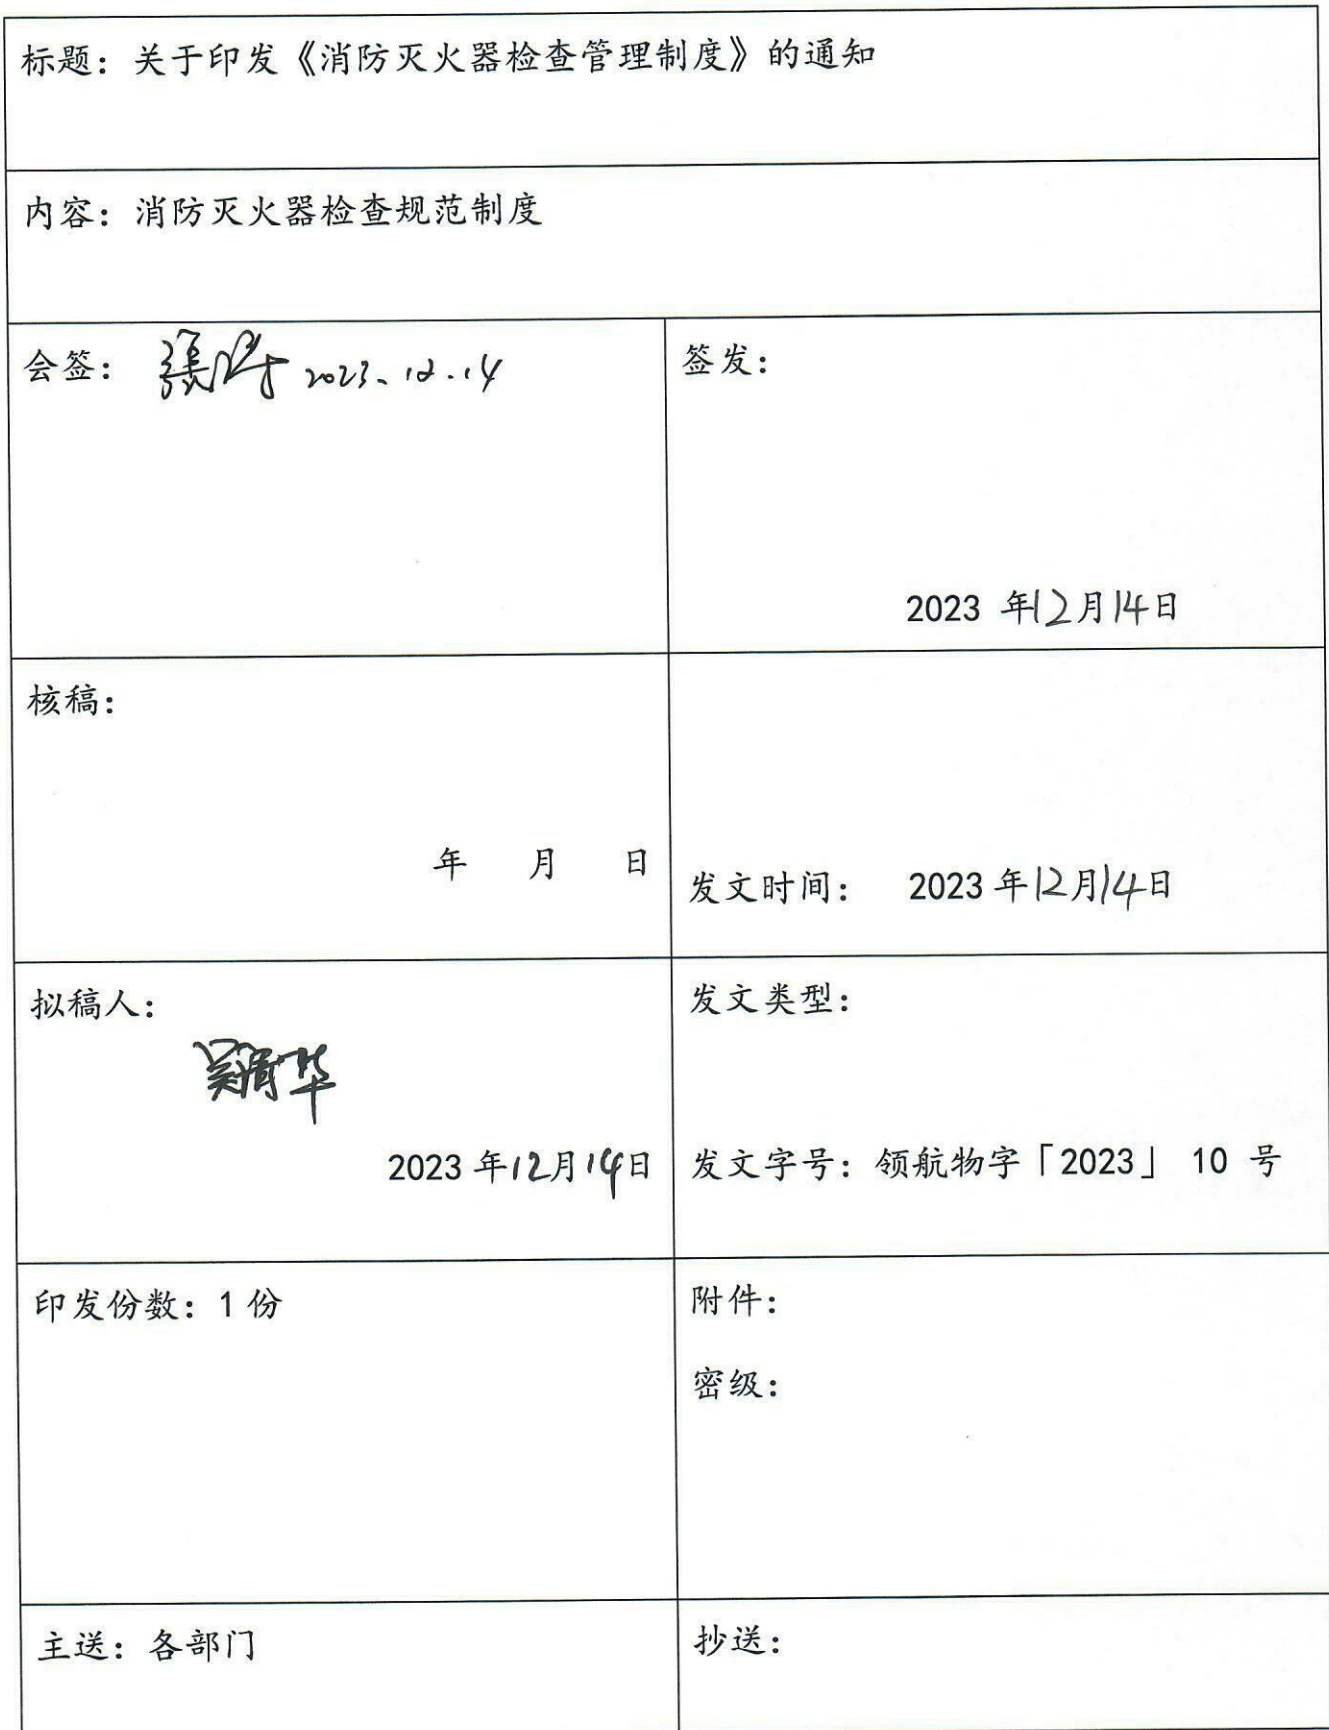 标题：关于印发《消防灭火器检查管理制度》的通知
内容：消防灭火器检查规范制度
会签： 2023、12.14
签发：
2023 年12月14日
核稿：
年 月 日
发文时间： 2023年12月14日
拟稿人：
2023年12月14日
发文类型：
发文字号：领航物字「2023」 10 号
印发份数：1份
附件：
密级：
主送：各部门
抄送：